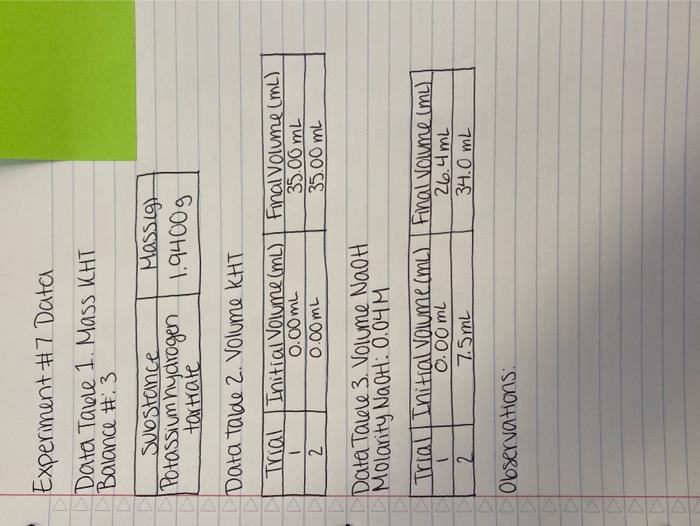 Experiment #7 Data
Data Table 1. Mass KHT
Balance #: 3
Substance Mass(g)
Potassium hydrogen 1.9400g
tartrate
Data table 2. Volume KHT
Trial Initial Volume (mL) Final Volume (mL)
1 0.00mL 35.00 mL
2 0.00mL 35.00 mL
Data Table 3. Volume NaOH
Molarity NaOH: 0.04M
Trial Initial Volume (mL) Final Volume (mL)
1 0.00 mL 26.4mL
2 7.5mL 34.0 mL
Observations: